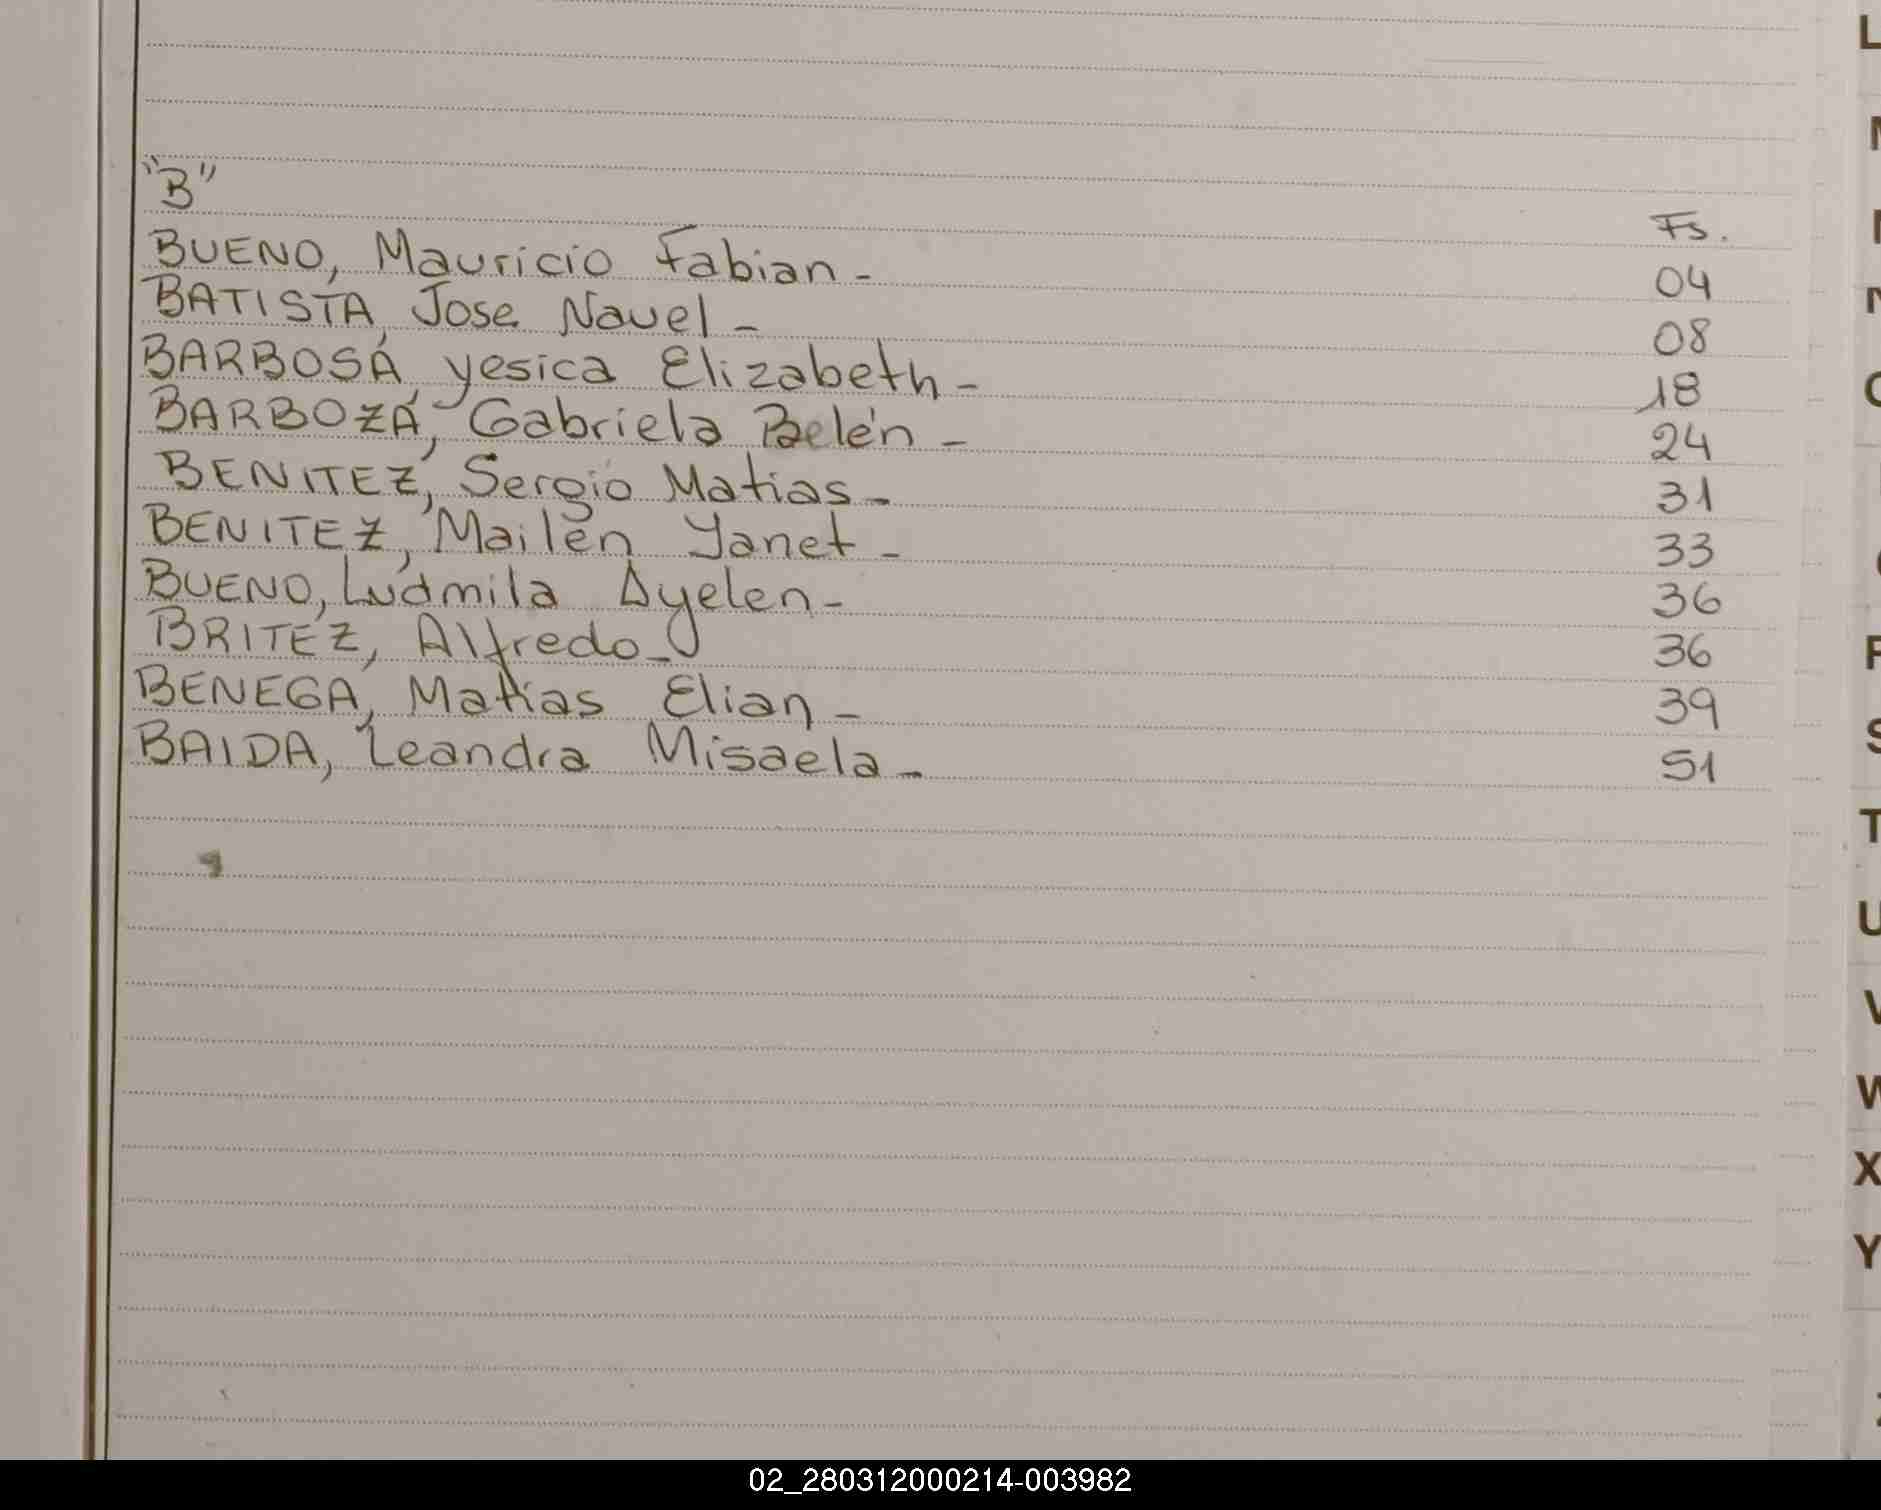 "B"
Fs.
BUENO, Mauricio Fabian - 04
BATISTA, Jose Nauel - 08
BARBOSA, yesica Elizabeth - 18
BARBOZA, Gabriela Belén - 24
BENITEZ, Sergio Matias - 31
BENITEZ, Mailén Yanet - 33
BUENO, Ludmila Ayelen - 36
BRITEZ, Alfredo - 36
BENEGA, Matias Elian - 39
BAIDA, Leandra Misaela - 51
L
M
N
O
P
S
T
U
V
W
X
Y
02_280312000214-003982